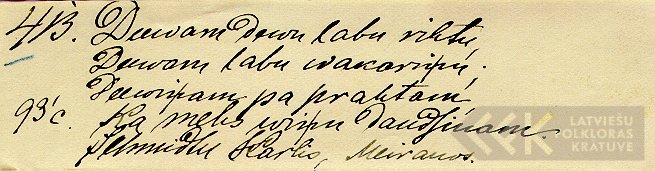 413. Deewam dewu labu rihtu,
Deewam labu wakariņu.
Deewiņam pa prahtam,
Ka mehs wiņu daudsinam.
Karlis, Meiranos.
LATVIEŠU
FOLKLORAS
KRATUVE